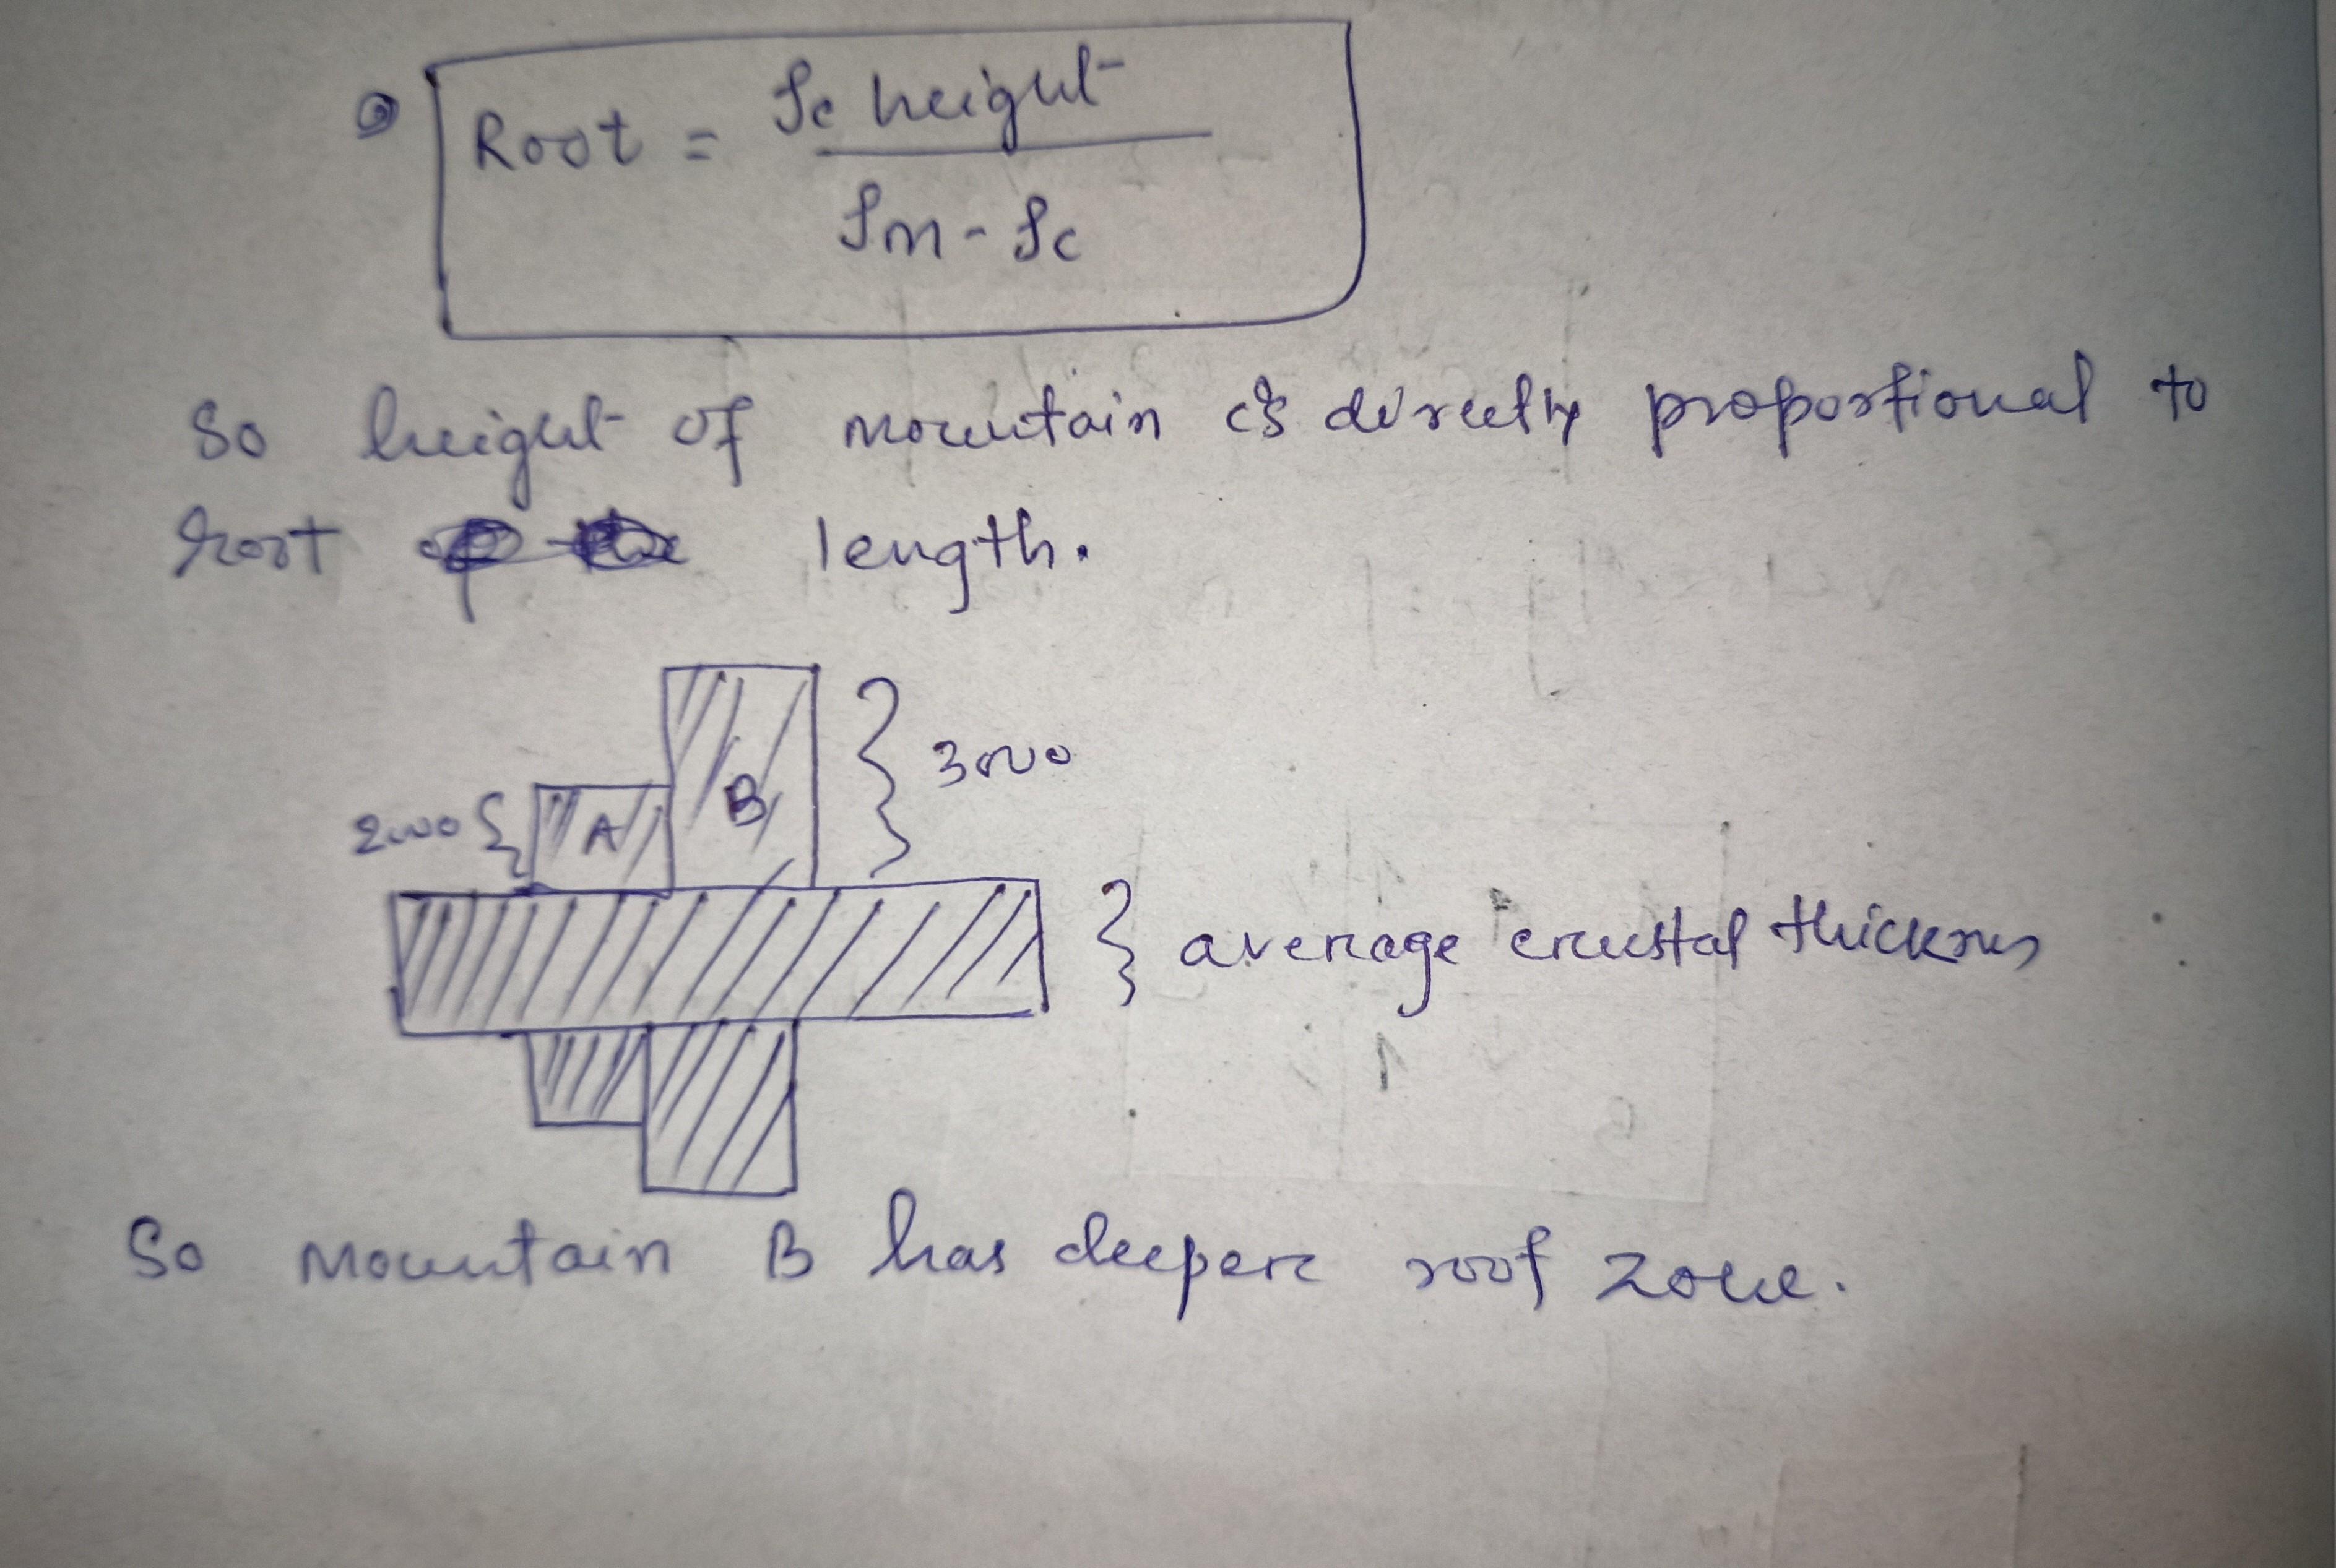 Root = ρc height / ρm - ρc
So height of mountain is directly proportional to
root length.
3000
2000 A B
average crustal thickness
So Mountain B has deeper root zone.